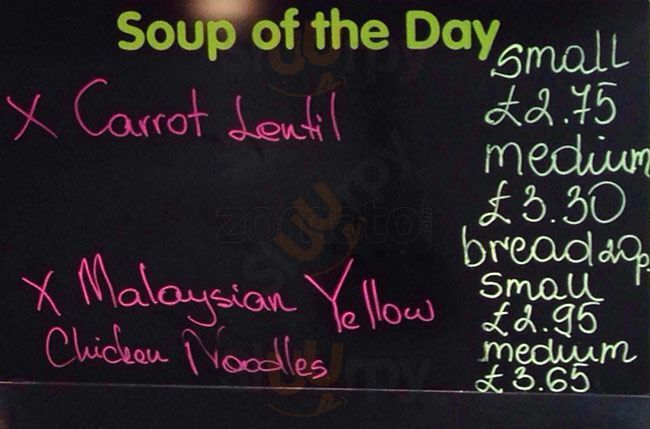 Soup of the Day
small
X Carrot Lentil
£2.75
medium
£3.30
bread 20p
X Malaysian Yellow
Chicken Noodles
small
£2.95
medium
£3.65
zomato.com